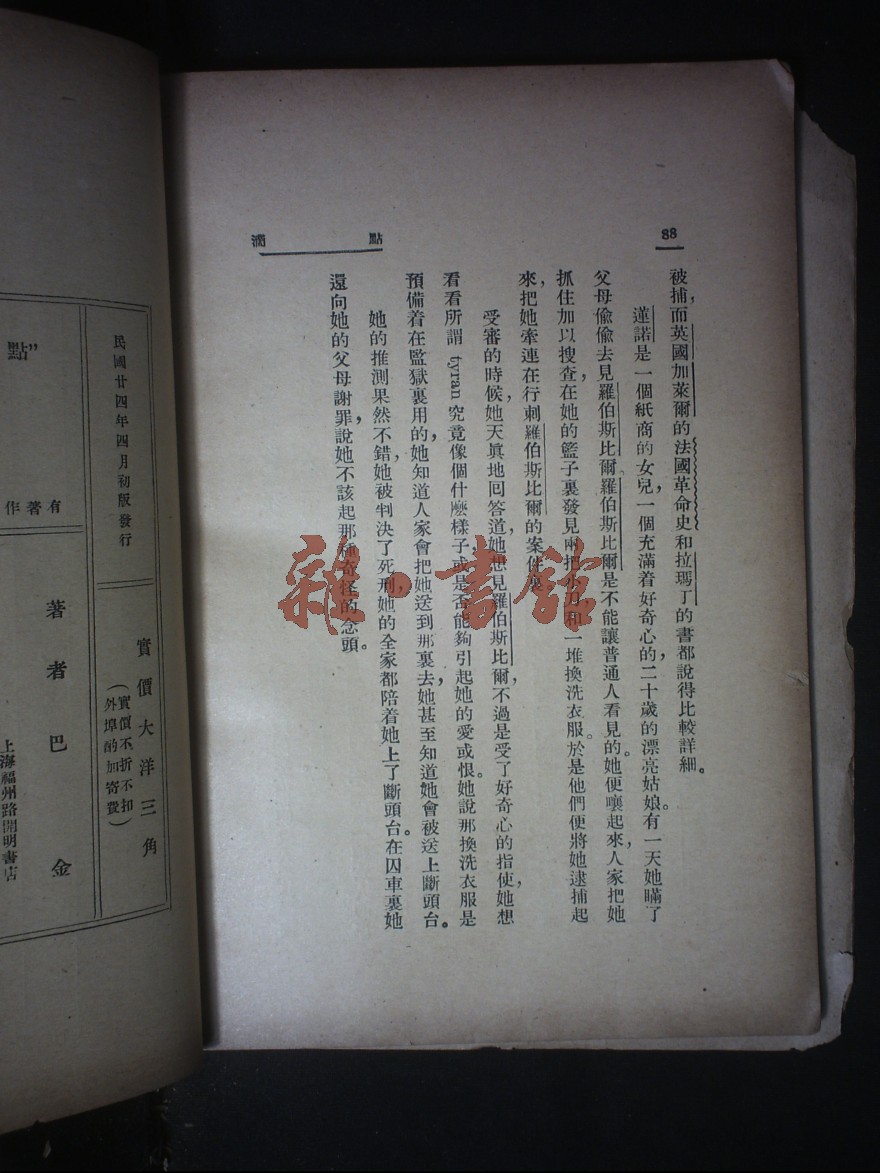 88
點滴
被捕，而英國加萊爾的法國革命史和拉瑪丁的書都說得比較詳細。
蓮諾是一個紙商的女兒，一個充滿着好奇心的二十歲的漂亮姑娘。有一天她瞞了
父母偷偷去見羅伯斯比爾。羅伯斯比爾是不能讓普通人看見的。她便嚷起來，人家把她
抓住加以搜查，在她的籃子裏發見兩把小刀和一堆換洗衣服。於是他們便將她逮捕起
來，把她牽連在行刺羅伯斯比爾的案件裏。
受審的時候，她天眞地回答道，她想見羅伯斯比爾，不過是受了好奇心的指使，她想
看看所謂 tyran 究竟像個什麽樣子，或是否能夠引起她的愛或恨。她說那換洗衣服是
預備着在監獄裏用的，她知道人家會把她送到那裏去，她甚至知道她會被送上斷頭台。
她的推測果然不錯，她被判決了死刑，她的全家都陪着她上了斷頭台。在囚車裏她
還向她的父母謝罪，說她不該起那種奇怪的念頭。
雜·書館
實價大洋三角
（實價不折不扣
外埠酌加寄費）
民國廿四年四月初版發行
點”
有著作
著者巴金
上海福州路開明書店